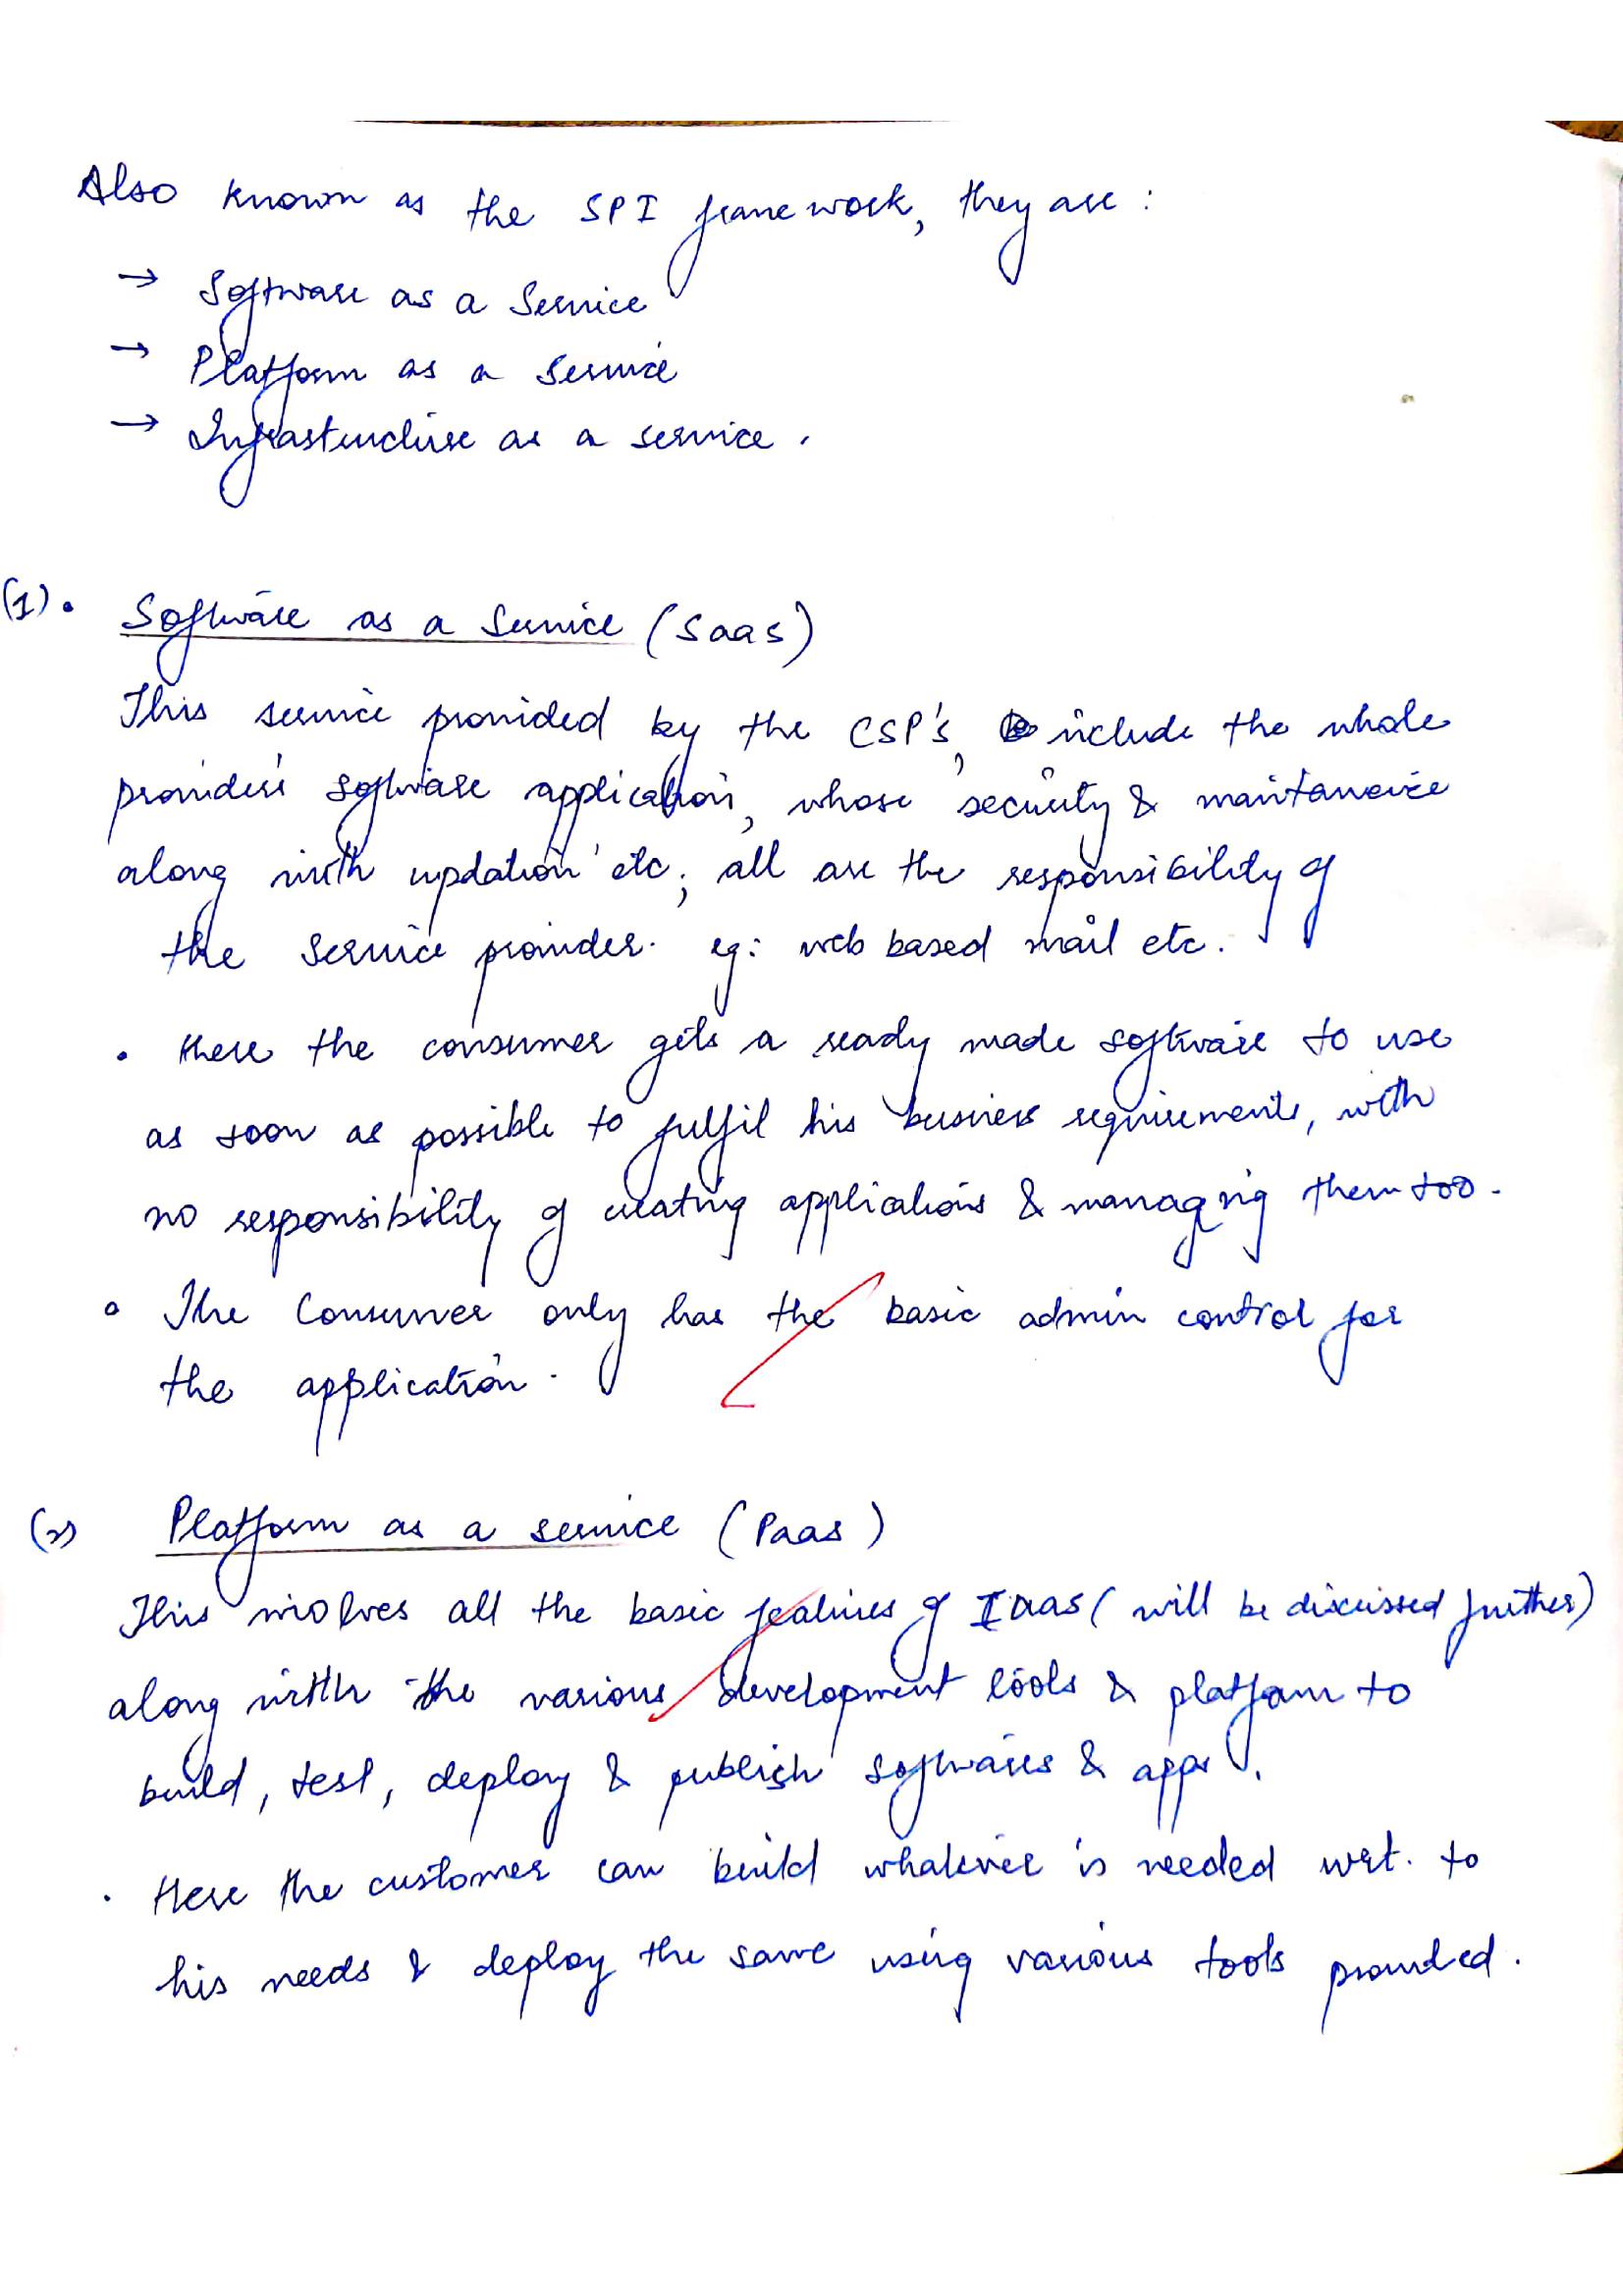 Also known as the SPI framework, they are :
→ Software as a Service
→ Platform as a Service
→ Infrastructure as a service.
(1). Software as a Service (Saas)
This service provided by the CSP's, include the whole
provider's software application, whose security & maintaneice
along with updation etc; all are the responsibility of
the Service provider. eg: web based mail etc.
• Here the consumer gets a ready made software to use
as soon as possible to fulfil his business requirements, with
no responsibility of creating applications & managing them too.
• The Consumer only has the basic admin control for
the application.
(2) Platform as a service (Paas)
This involves all the basic features of Iaas ( will be discussed further)
along with the various development tools & platform to
build, test, deploy & publish softwares & apps.
• Here the customer can build whatever is needed wrt. to
his needs & deploy the same using various tools provided.